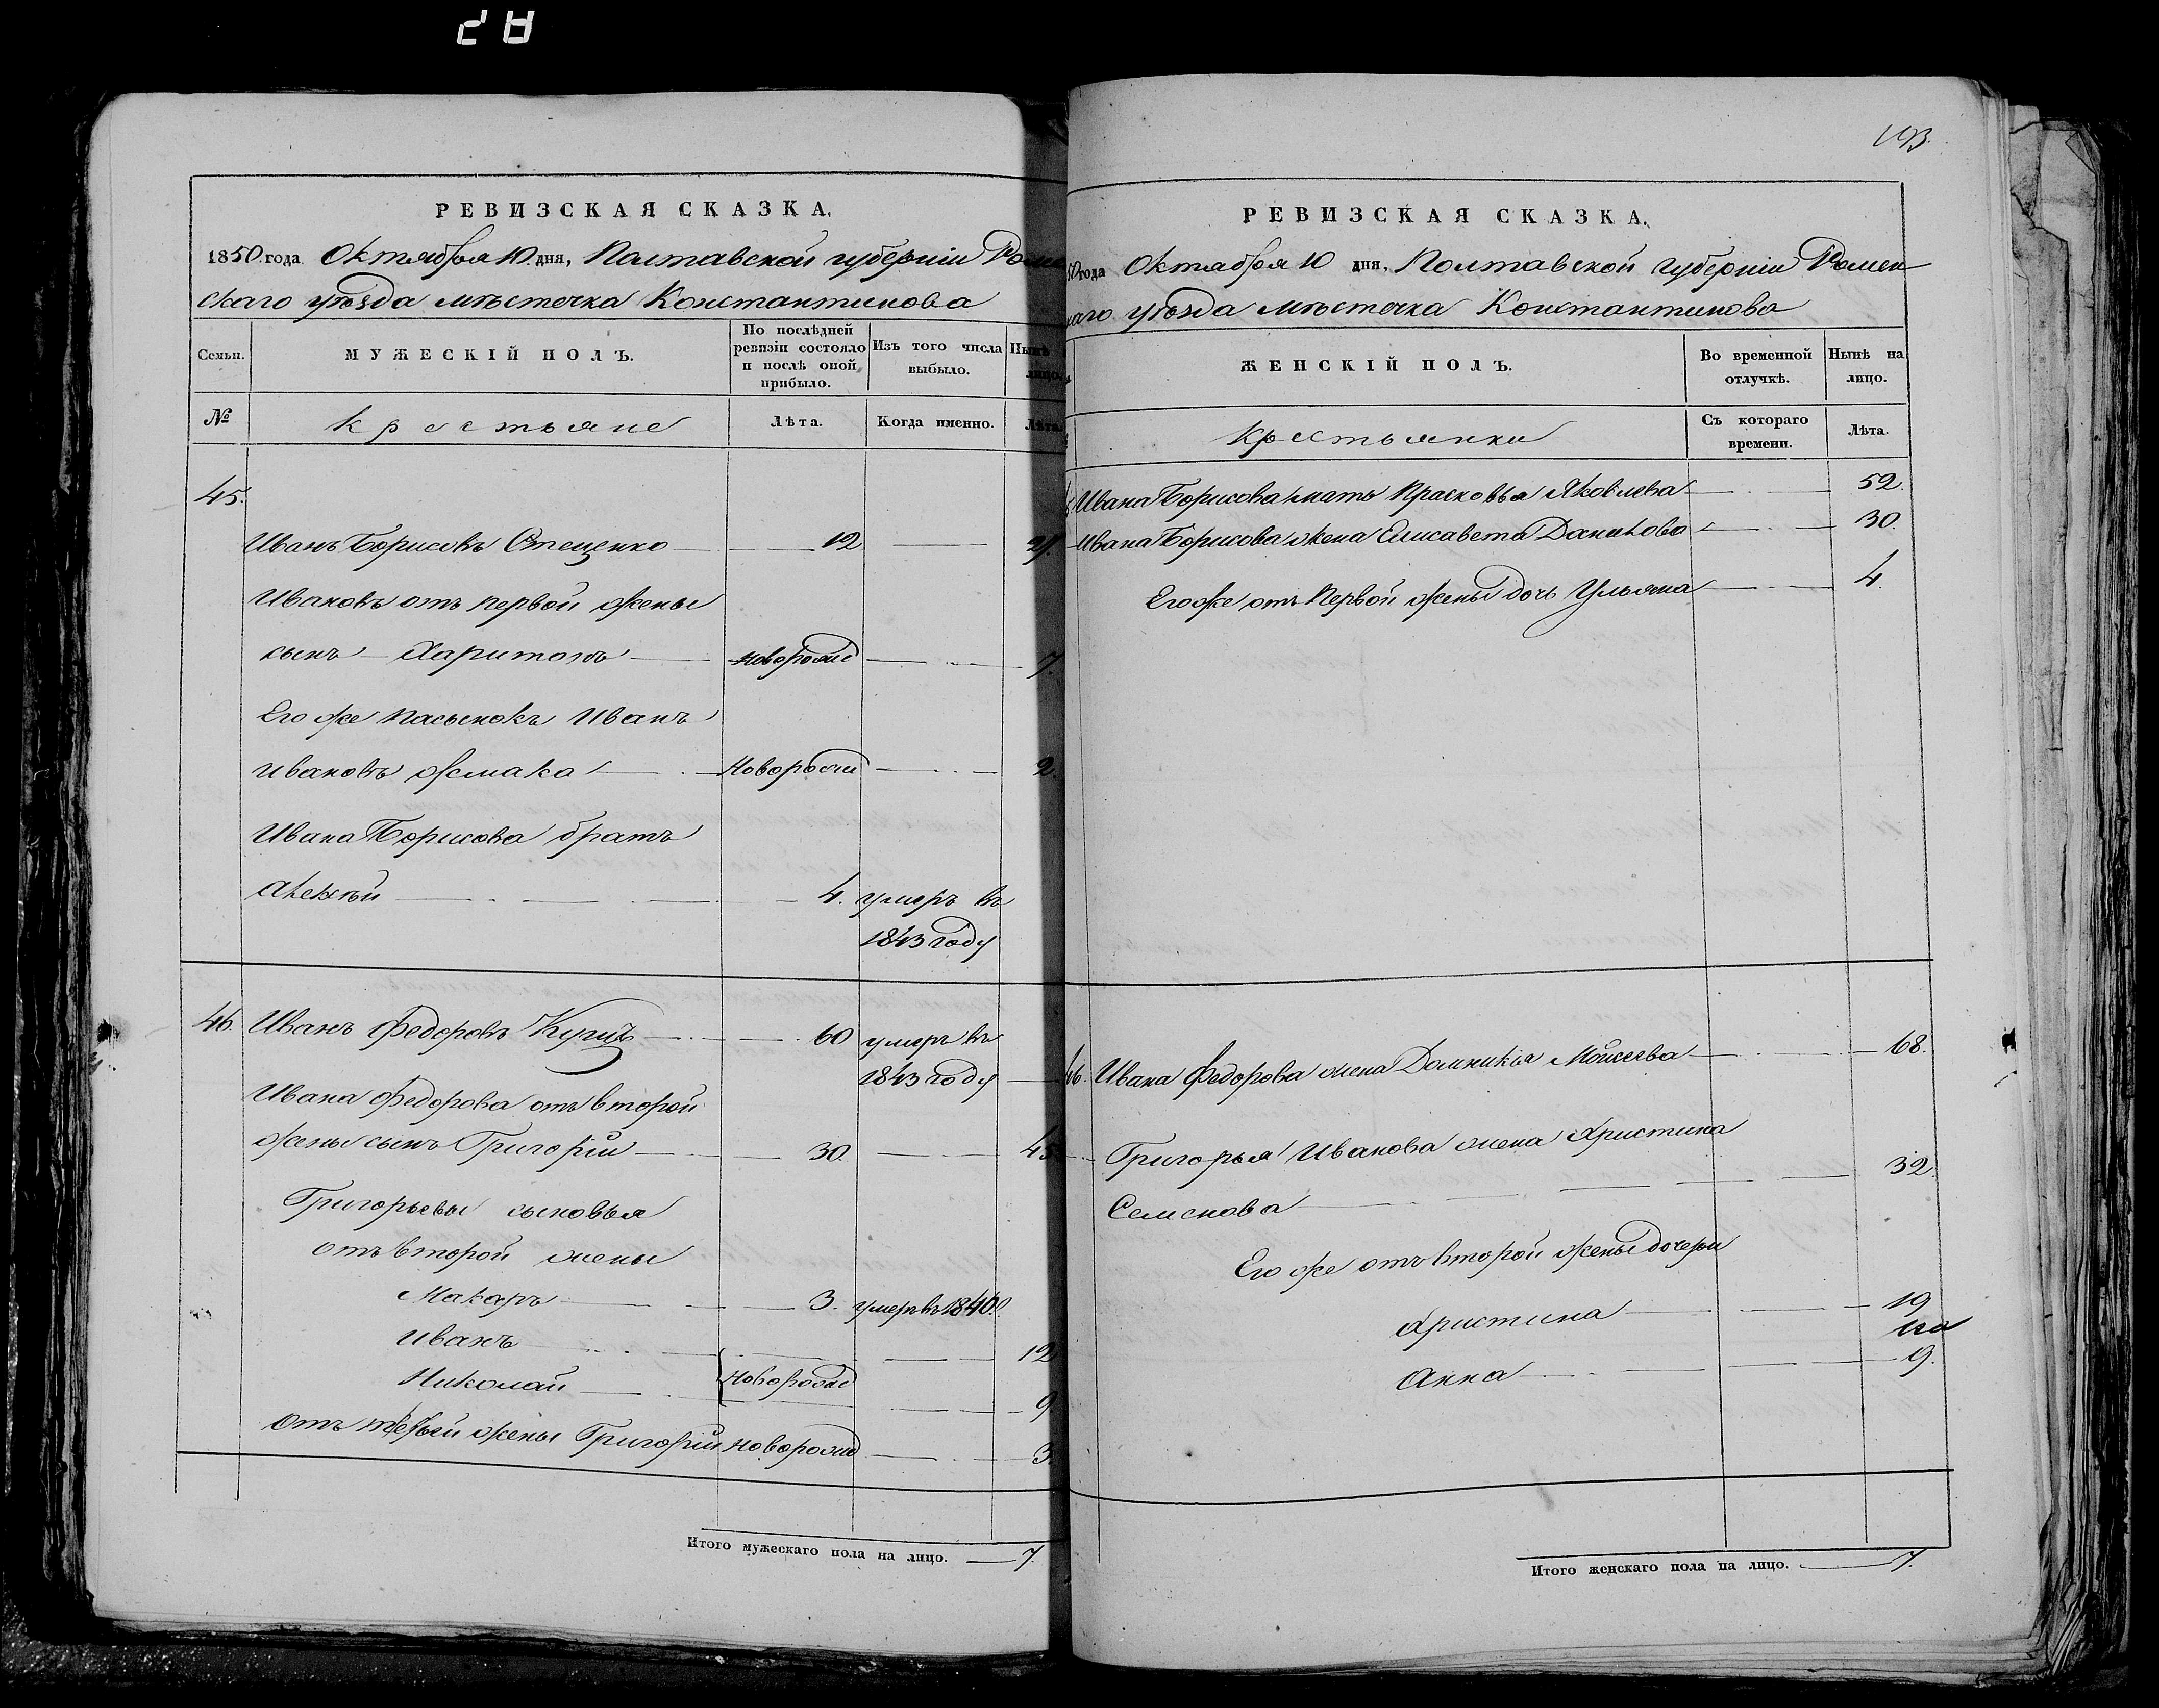 28
РЕВИЗСКАЯ СКАЗКА.
1850 года Октября 10 дня, Полтавской губерніи Роме
скаго уѣзда мѣстечка Константинова
Семьи.
МУЖЕСКІЙ ПОЛЪ.
По послѣдней ревизіи состояло и послѣ оной прибыло.
Изъ того числа выбыло.
Нынѣ лицо.
№
крестьяне
Лѣта.
Когда именно.
Лѣта
45.
Иванъ Борисовъ Стеценко 12
Ивановъ отъ первой жены
сынъ Харитонъ новорожд 7.
Его же пасынокъ Иванъ
Ивановъ новорожд 2.
Ивана Борисова братъ
Алексѣй 4. умеръ въ
1843 году
46. Иванъ Федоровъ 60 умеръ въ
1843 году
Ивана Федорова отъ второй
жены сынъ Григорій 30. 45
Григорьевы сыновья
отъ второй жены
Макаръ 3. умеръ въ 1840.
Иванъ 12
Николай новорожд 9
отъ третьей жены Григорій новорожд 3.
Итого мужескаго пола на лицо. 7.
193.
РЕВИЗСКАЯ СКАЗКА.
50 года Октября 10 дня, Полтавской губерніи Ромен
каго уѣзда мѣстечка Константинова
ЖЕНСКІЙ ПОЛЪ.
Во временной отлучкѣ.
Нынѣ на лицо.
крестьянки
Съ котораго времени.
Лѣта.
Ивана Борисова мать Прасковья Яковлева 52.
Ивана Борисова жена Елисавета Данилова 30.
Его же отъ первой жены дочь Ульяна 4.
46. Ивана Федорова жена Домникія Мойсеева 68.
Григорья Иванова жена Христина
Семенова 32.
Его же отъ второй жены дочери
Христина 19
Анна 9.
Итого женскаго пола на лицо. 7.